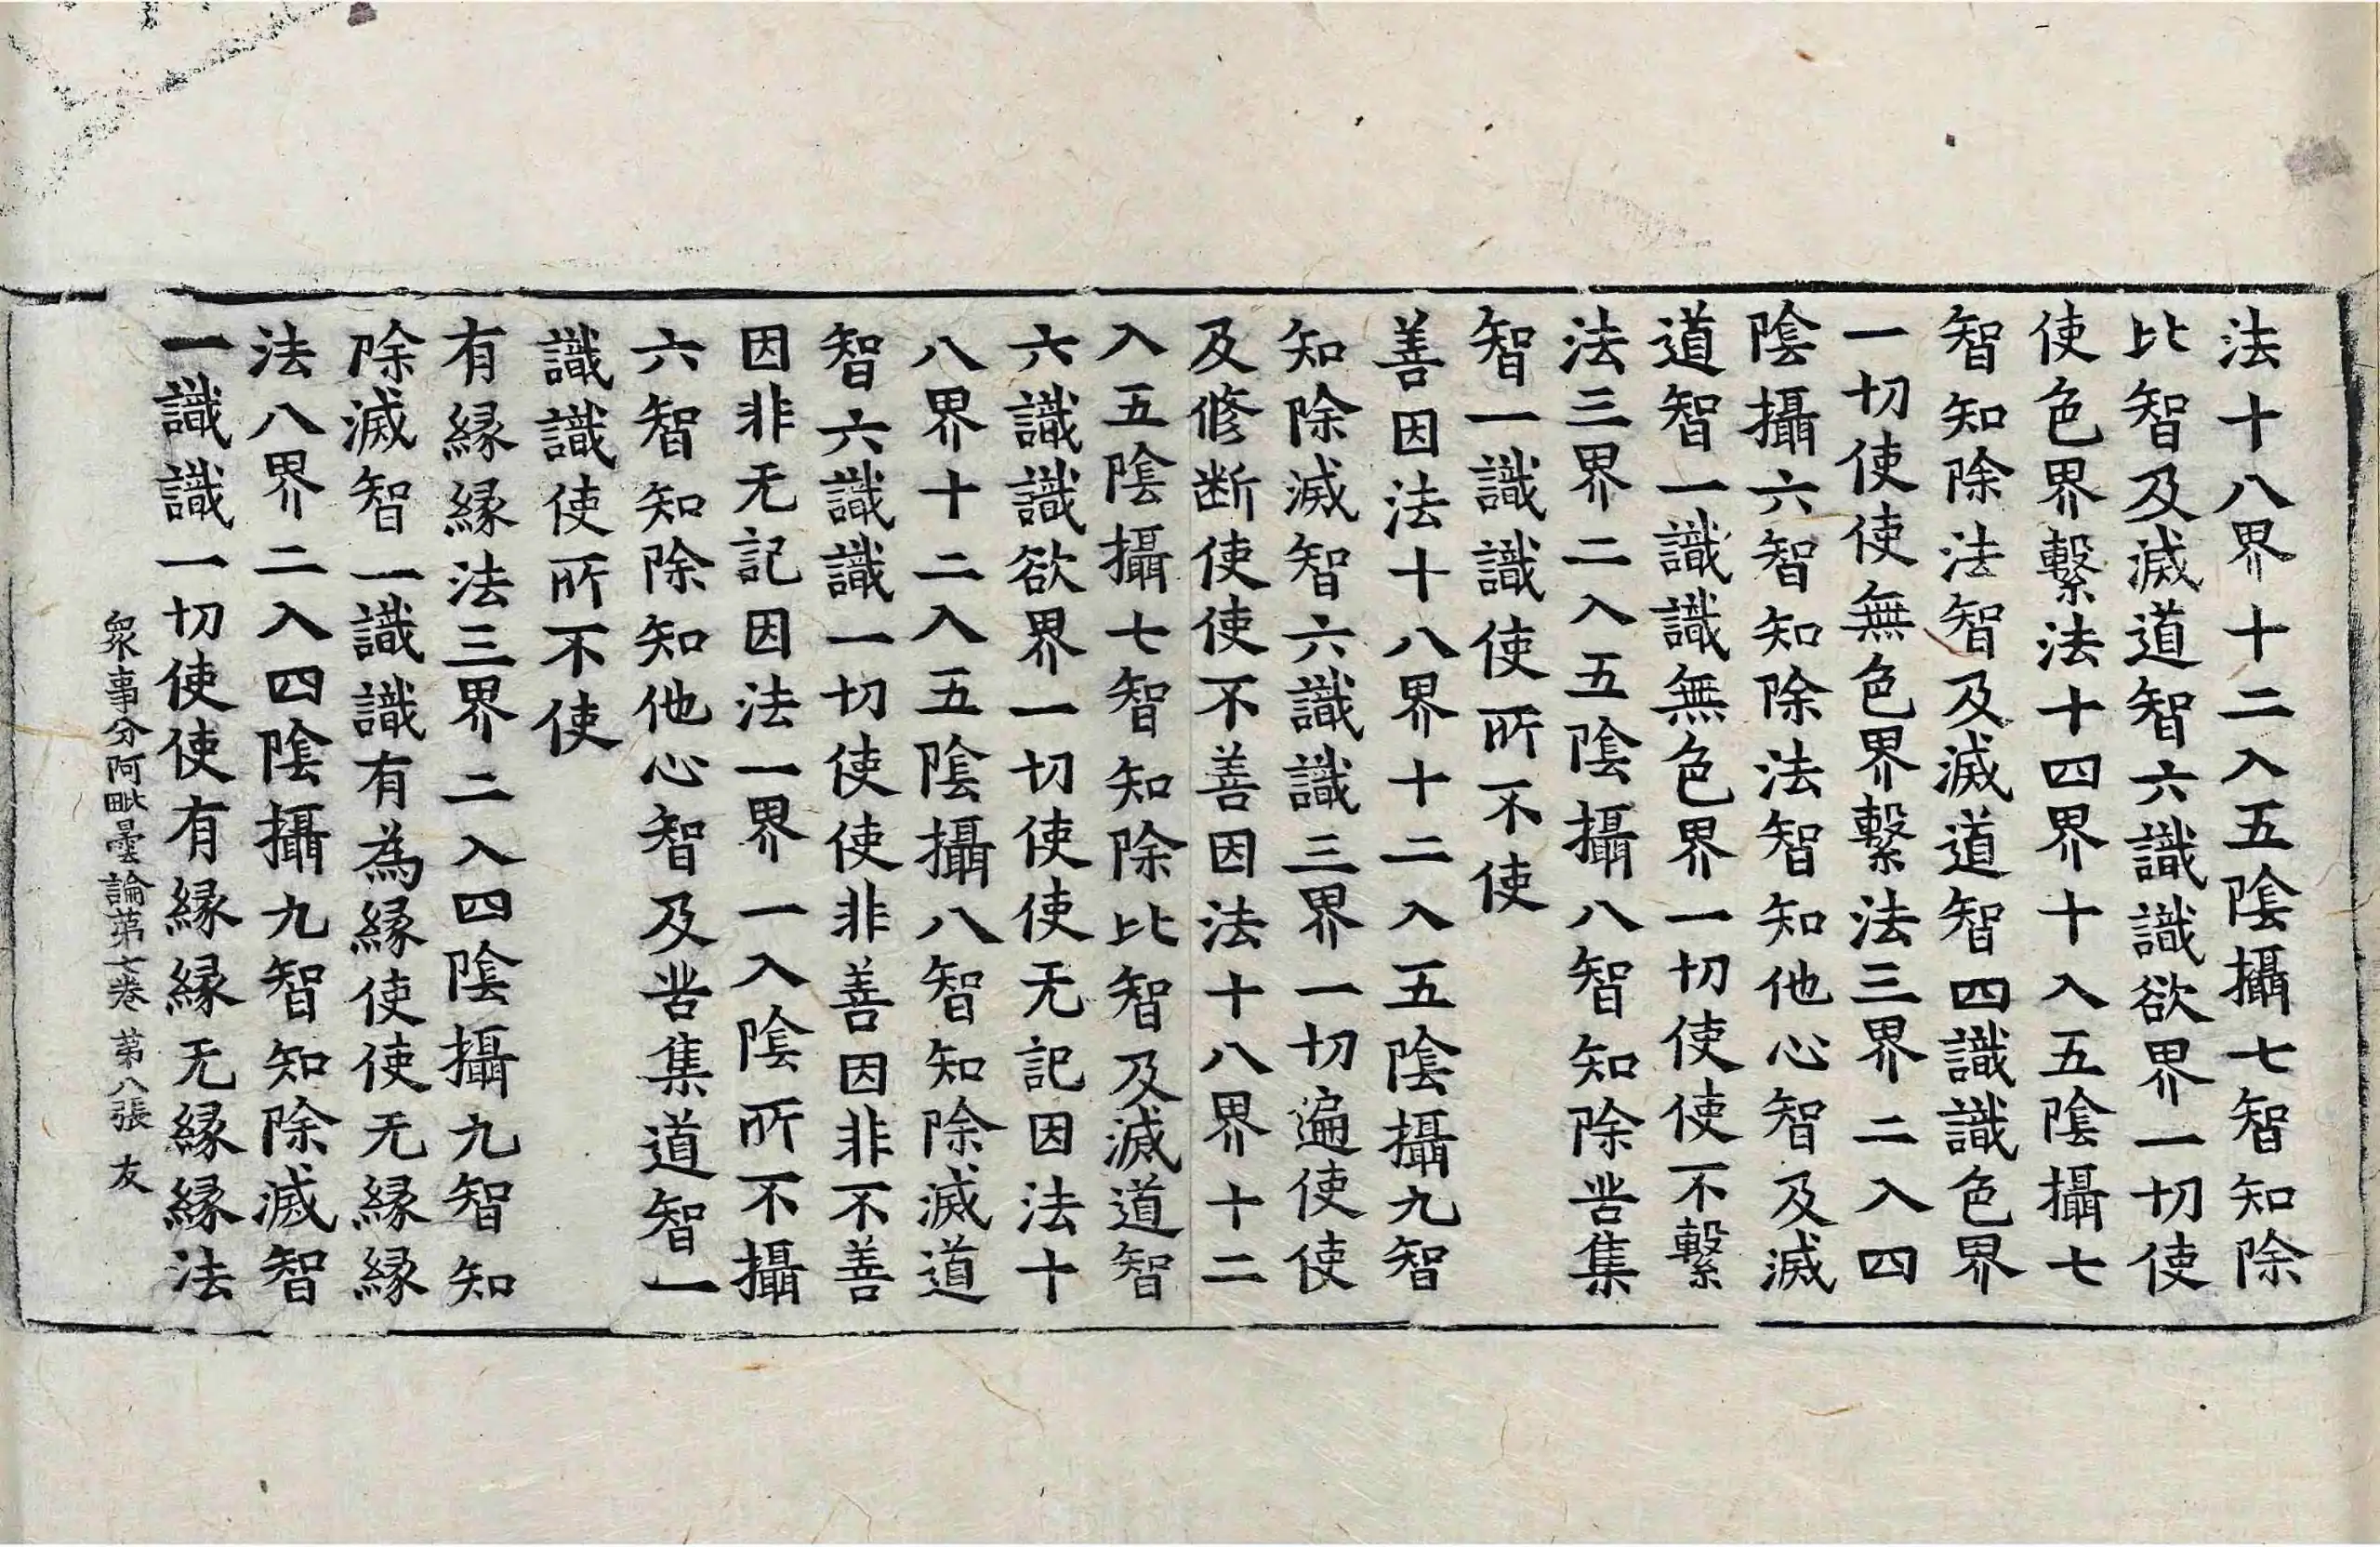 法十八界十二入五隂攝七智知除
比智及滅道智六識識欲界一切使
使色界繫法十四界十入五隂攝七
智知除法智及滅道智四識識色界
一切使使無色界繫法三界二入四
隂攝六智知除法智知他心智及滅
道智一識識無色界一切使使不繫
法三界二入五隂攝八智知除苦集
智一識識使所不使
善因法十八界十二入五隂攝九智
知除滅智六識識三界一切遍使使
及修断使使不善因法十八界十二
入五隂攝七智知除比智及滅道智
六識識欲界一切使使无記因法十
八界十二入五隂攝八智知除滅道
智六識識一切使使非善因非不善
因非无記因法一界一入隂所不攝
六智知除知他心智及苦集道智一
識識使所不使
有縁縁法三界二入四隂攝九智知
除滅智一識識有為縁使使无縁縁
法八界二入四隂攝九智知除滅智
一識識一切使使有縁縁无縁縁法
衆事分阿毗曇論苐七卷 苐八張 友